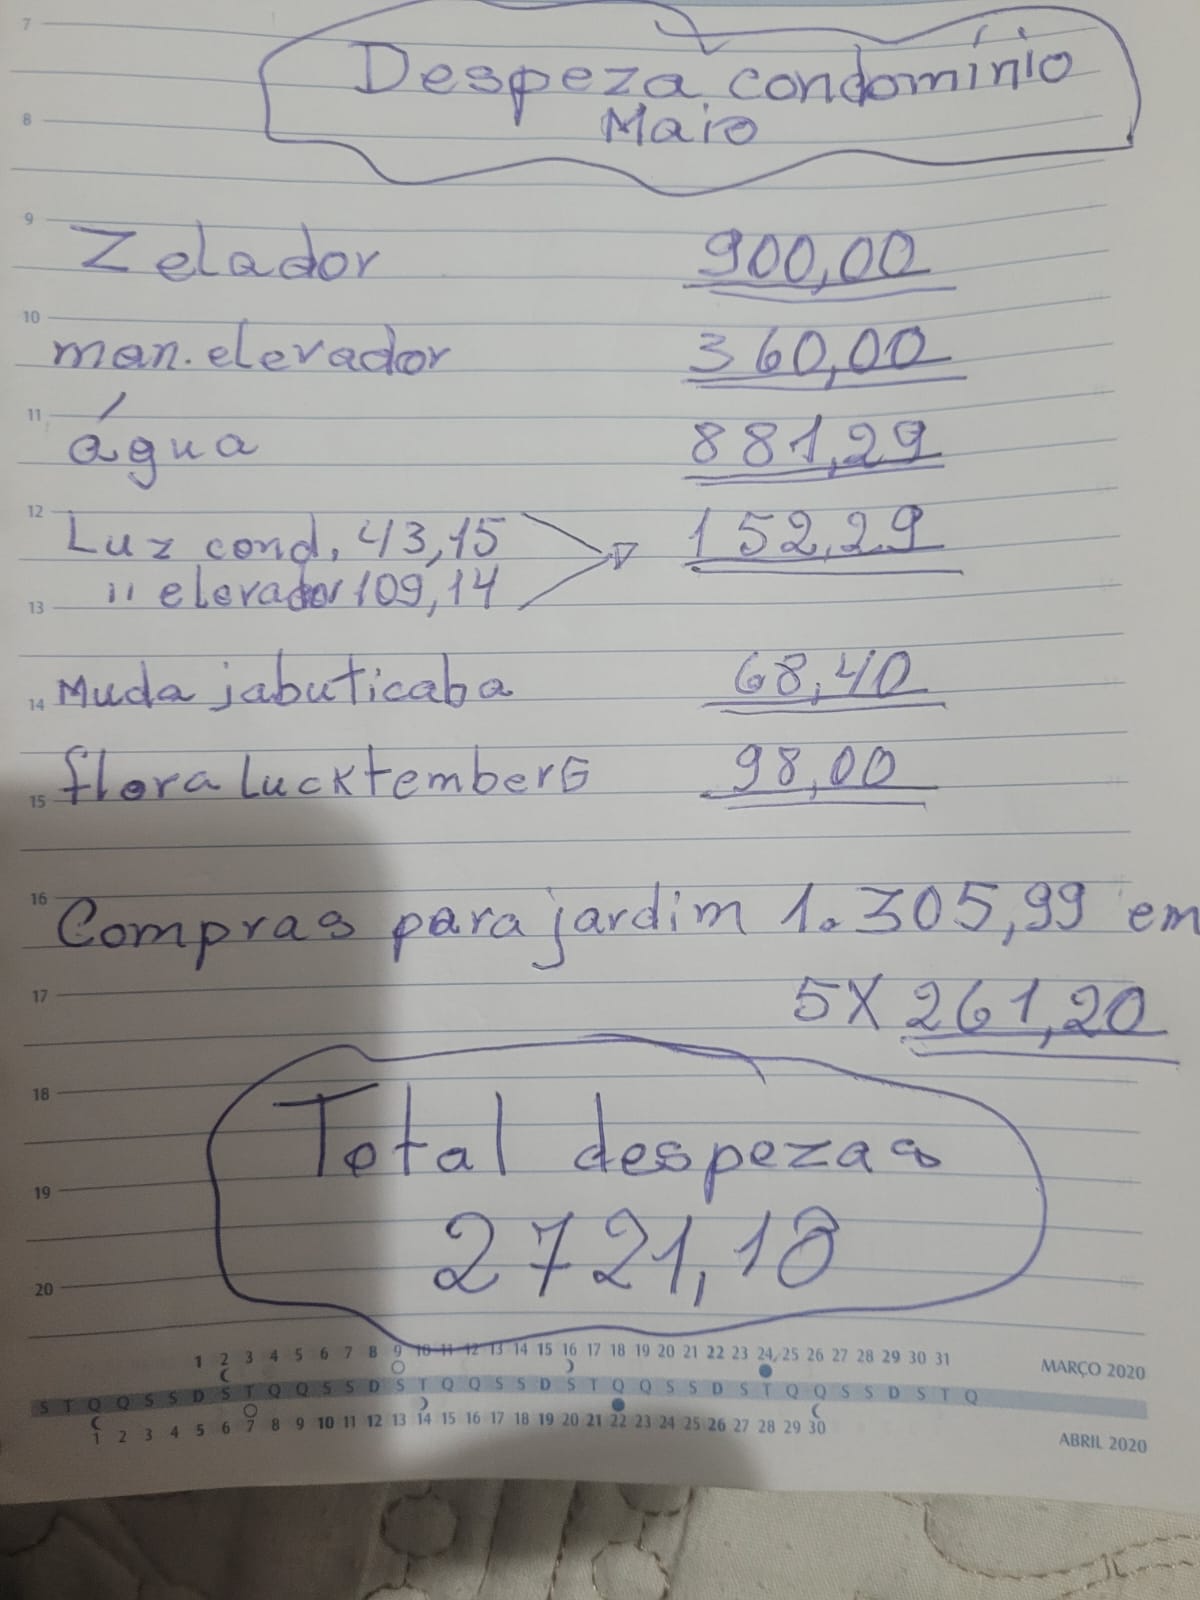 7
Despeza condomínio
8
Maio
9
Zelador 900,00
10
man. elevador 360,00
11
água 881,29
12
Luz cond. 43,15 152,29
13
" elevador 109,14
14
Muda jabuticaba 68,40
15
flora LucktemberG 98,00
16
Compras para jardim 1.305,99 em
17
5X 261,20
18
Total despezas
19
2721,18
20
1 2 3 4 5 6 7 8 9 10 11 12 13 14 15 16 17 18 19 20 21 22 23 24 25 26 27 28 29 30 31 MARÇO 2020
S T Q Q S S D S T Q Q S S D S T Q Q S S D S T Q Q S S D S T Q Q S S D S T Q
1 2 3 4 5 6 7 8 9 10 11 12 13 14 15 16 17 18 19 20 21 22 23 24 25 26 27 28 29 30 ABRIL 2020